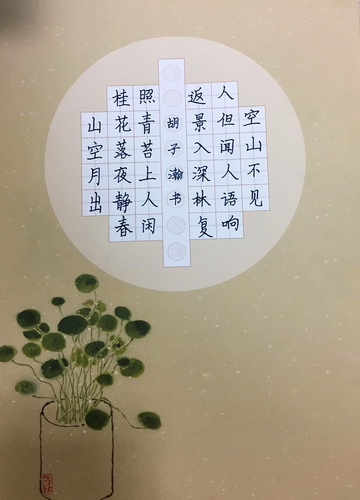 空山不见
人但闻人语响
返景入深林复
胡子瀚书
照青苔上人闲
桂花落夜静春
山空月出